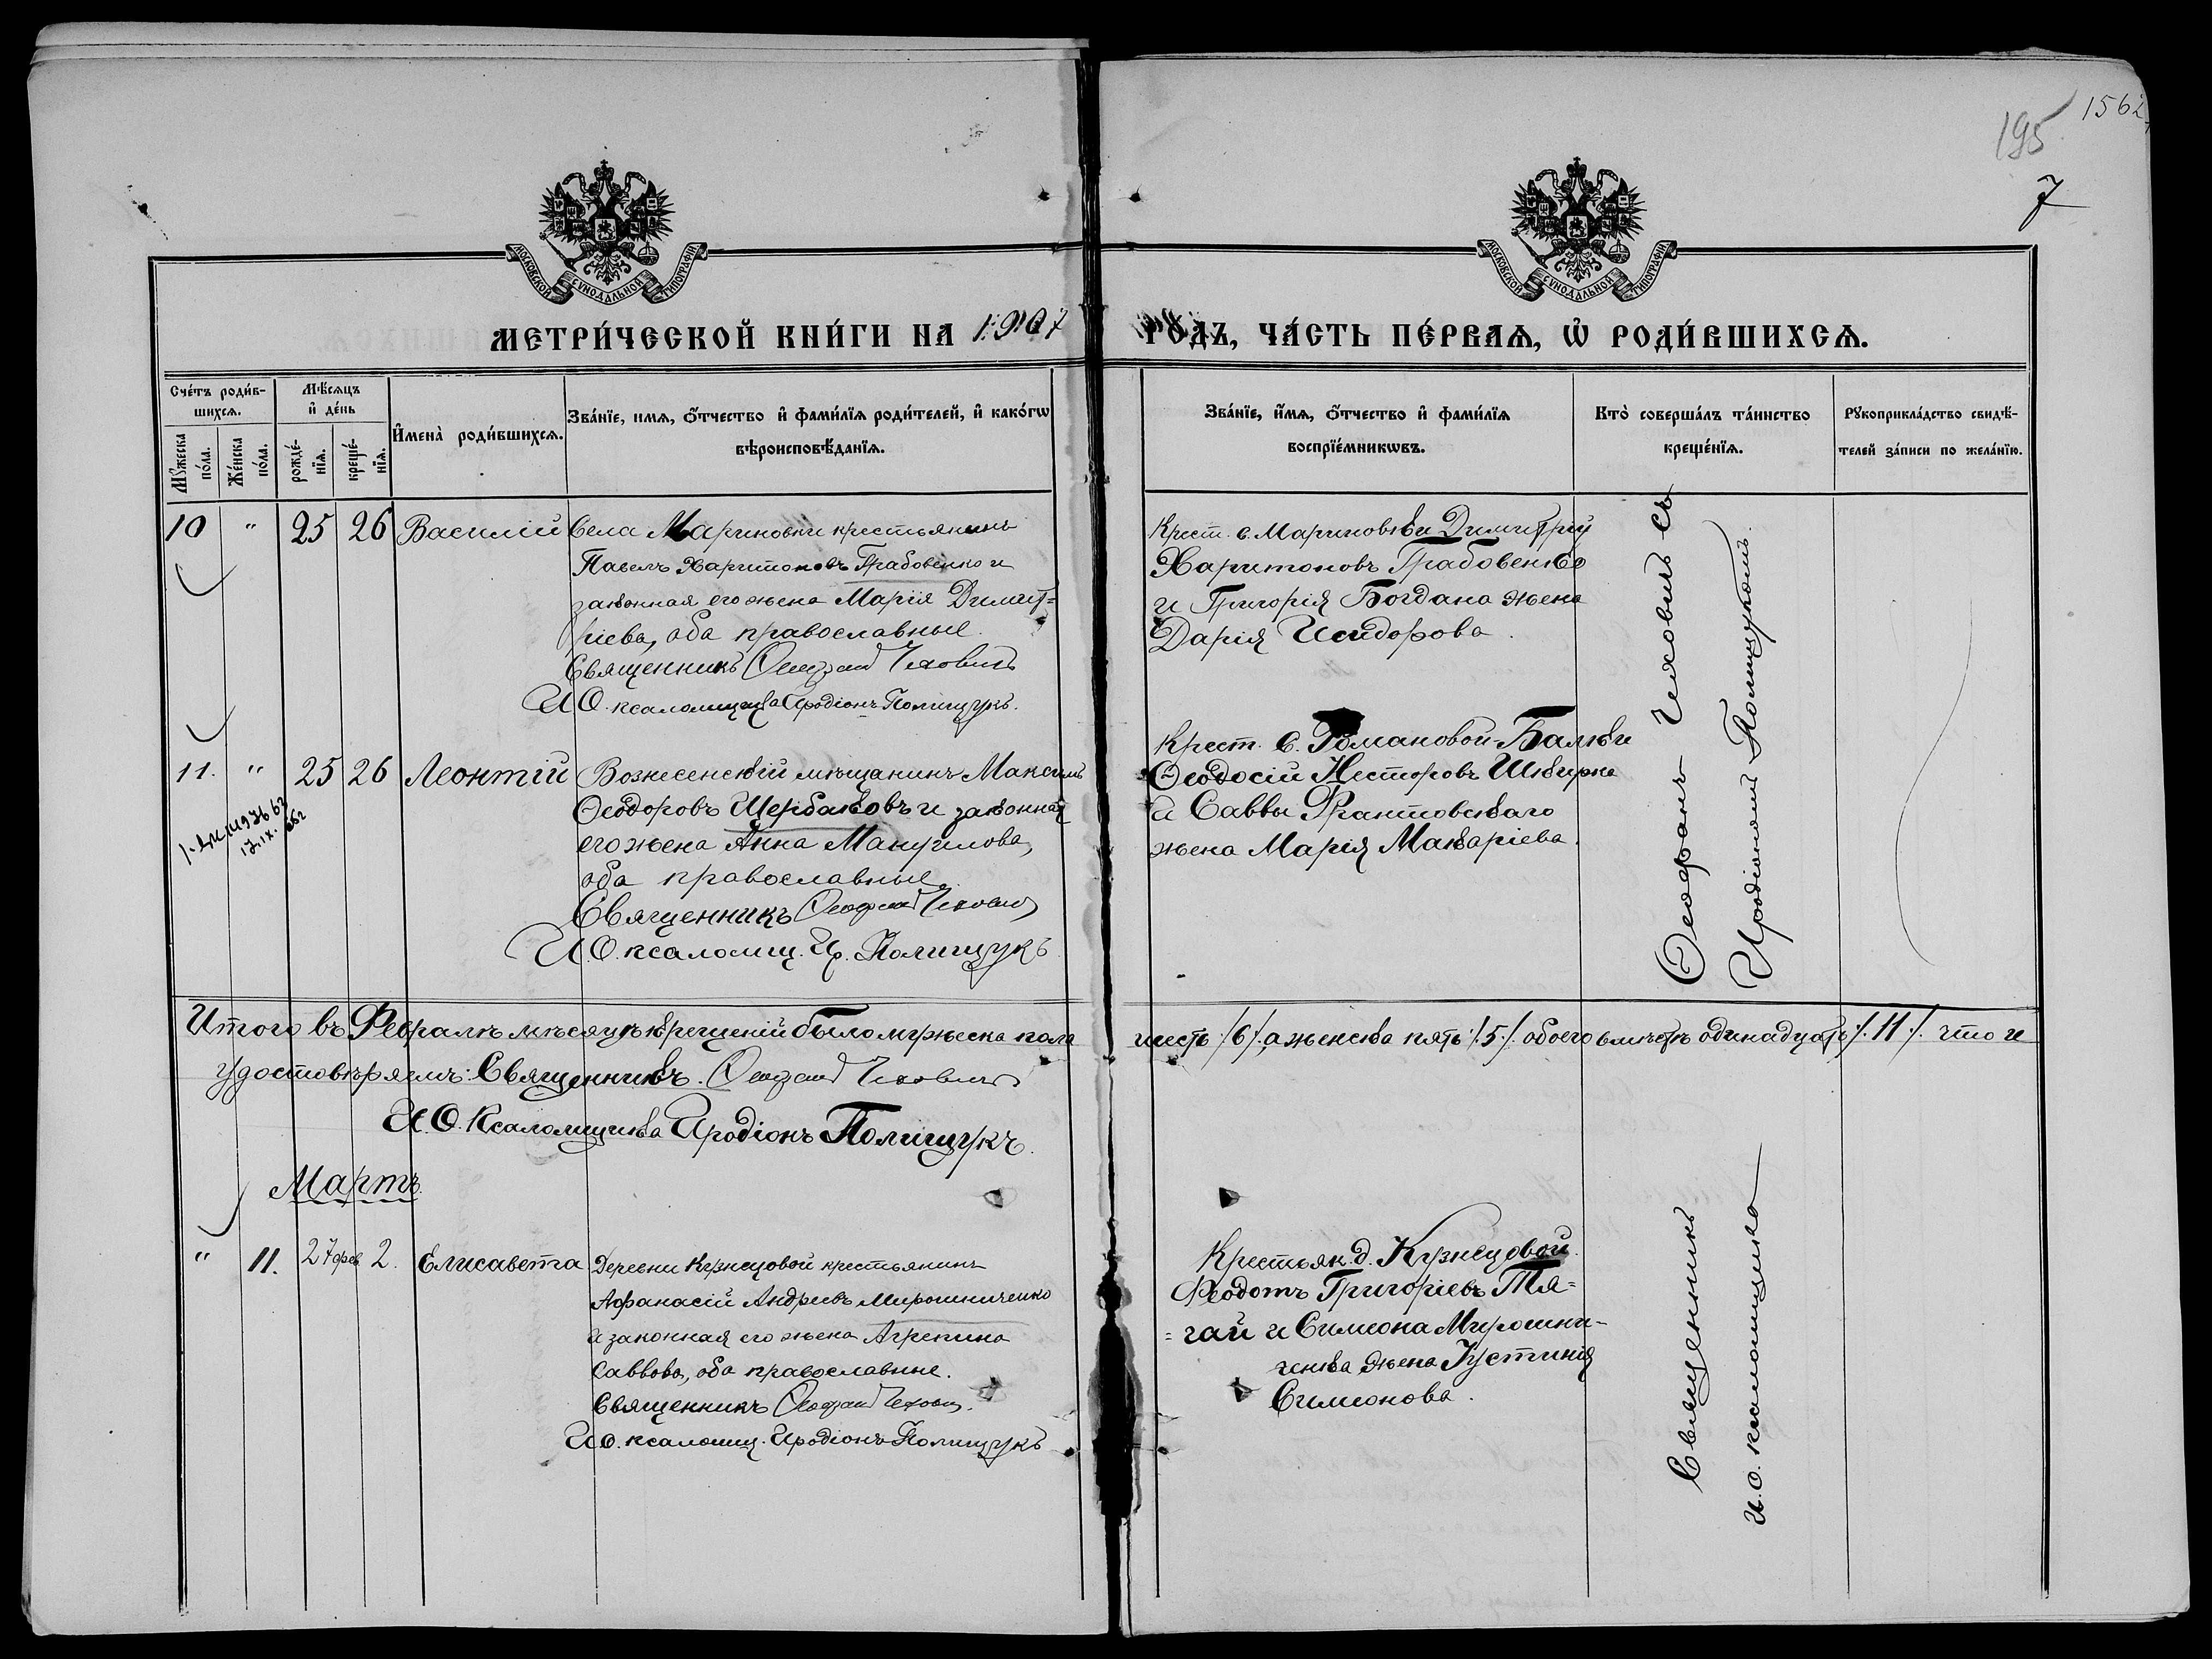 1562
195
7
МОСКОВСКОЙ СѴНОДАЛЬНОЙ ТИПОГРАФІИ
МОСКОВСКОЙ СѴНОДАЛЬНОЙ ТИПОГРАФІИ
МЕТРИ́ЧЕСКОЙ КНИ́ГИ НА 1907
ГОДЪ, ЧА́СТЬ ПЕ́РВАѦ, Ѡ҆ РОДИ́ВШИХСѦ.
Сче́тъ роди́в-
шихсѧ.
Мѣ́сѧцъ
и҆ де́нь
Мꙋ́жеска по́ла.
Же́нска по́ла.
рожде́-нїѧ.
креще́-нїѧ.
И҆мена̀ роди́вшихсѧ.
Зва́нїе, имѧ, ѻ҆́тчество и҆ фами́лїѧ роди́телей, и҆ како́гѡ
вѣроисповѣ́данїѧ.
Зва́нїе, и҆́мѧ, ѻ҆́тчество и҆ фами́лїѧ
воспрїе́мникѡвъ.
Кто̀ соверша́лъ та́инство
креще́нїѧ.
Рꙋкоприкла́дство свидѣ́-
телей за́писи по жела́нїю.
10 " 25 26 Василій
Села Мариновки крестьянинъ
Павелъ Харитоновъ Грабовенко и
законная его жена Марія Димит=
ріева, оба православные.
Священникъ Ѳеофанъ Чеховичъ
И. О. псаломщика Иродіонъ Полищукъ.
Крест. с. Мариновки Димитрій
Харитоновъ Грабовенко
и Григорія Богдана жена
Дарія Исидорова.
11. " 25 26 Леонтій
Вознесенскій мѣщанинъ Максимъ
Ѳеодоровъ Щербаковъ и законная
его жена Анна Мануилова,
оба православные.
Священникъ Ѳеофанъ Чеховичъ
И. О. псаломщ. Ир. Полищукъ
Крест. с. Романовой-Балки
Ѳеодосій Несторовъ Шкирка
и Саввы Франтовскаго
жена Марія Макаріева.
Ѳеофанъ Чеховичъ съ
Иродіономъ Полищукомъ.
Итого въ Февралѣ мѣсяцѣ крещеній было мужеска пола
шесть /6/, а женска пять /.5./ обоего вмѣстѣ одинадцать /. 11 ./. что и
удостовѣряемъ: Священникъ. Ѳеофанъ Чеховичъ
И. О. Псаломщика Иродіонъ Полищукъ.
Мартъ.
" 11. 27 фев 2. Елисавета
Деревни Кузнецовой крестьянинъ
Афанасій Андреевъ Мирошниченко
и законная его жена Агрепина
Саввова, оба православные.
Священникъ Ѳеофанъ Чеховичъ.
И. О. псаломщ. Иродіонъ Полищукъ
Крестьян. д. Кузнецовой
Ѳеодотъ Григоріевъ Тя=
=гай и Симеона Мирошни-
ченка жена Іустинія
Симеонова.
Священникъ
И. О. псаломщика